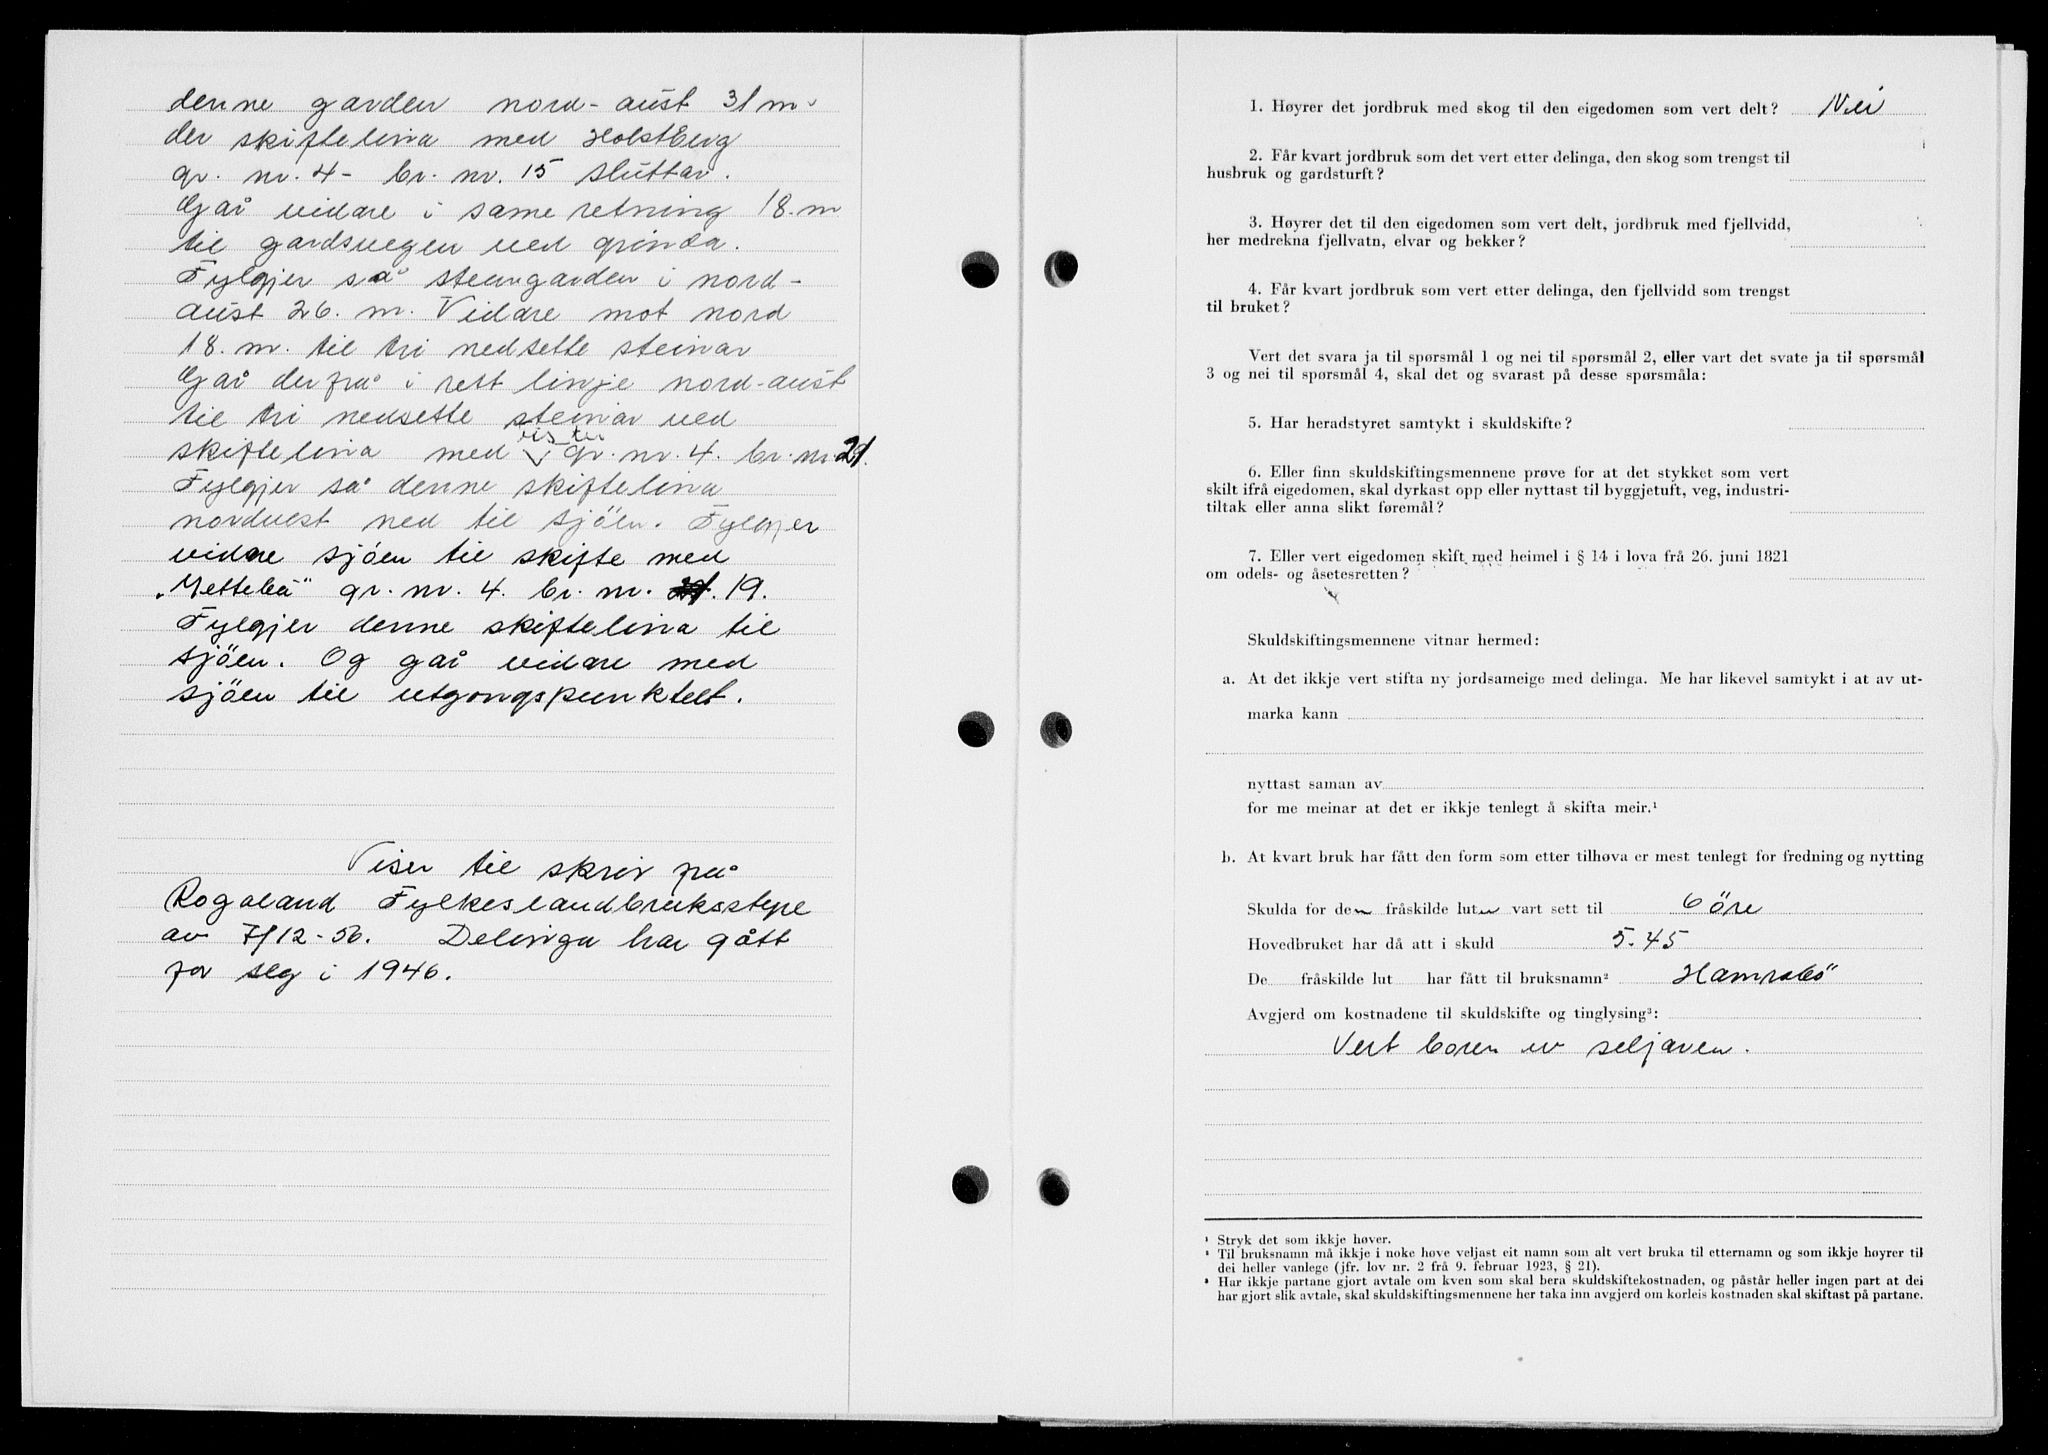 denne garden nord-aust 31 m.
der skiftelina med Holstberg
gr. nr. 4- br. nr. 15 sluttar.
Går vidare i same retning 18. m
til gardsvegen ved grinda.
Fylgjer så steingarden i nord-
aust 26. m. Vidare mot nord
18. m. til tri nedsette steinar
Går derfrå i rett linje nord-aust
til tri nedsette steinar ved
skiftelina med gr. nr. 4. br. nr. 21.
Fylgjer så denne skiftelina
nordvest ned til sjöen. Fylgjer
vidare sjöen til skifte med
"Mettebö" gr. nr. 4. br. nr. 19.
Fylgjer denne skiftelina til
sjöen. Og går vidare med
sjöen til utgongspunktet.
Viser til skriv frå
Rogaland Fylkeslandbruksstyre
av 7/12-56. Delinga har gått
for seg i 1946.
1. Høyrer det jordbruk med skog til den eigedomen som vert delt? Nei
2. Får kvart jordbruk som det vert etter delinga, den skog som trengst til
husbruk og gardsturft?
3. Høyrer det til den eigedomen som vert delt, jordbruk med fjellvidd,
her medrekna fjellvatn, elvar og bekker?
4. Får kvart jordbruk som vert etter delinga, den fjellvidd som trengst
til bruket?
Vert det svara ja til spørsmål 1 og nei til spørsmål 2, eller vart det svate ja til spørsmål
3 og nei til spørsmål 4, skal det og svarast på desse spørsmåla:
5. Har heradstyret samtykt i skuldskifte?
6. Eller finn skuldskiftingsmennene prøve for at det stykket som vert
skilt ifrå eigedomen, skal dyrkast opp eller nyttast til byggjetuft, veg, industri-
tiltak eller anna slikt føremål?
7. Eller vert eigedomen skift med heimel i § 14 i lova frå 26. juni 1821
om odels- og åsetesretten?
Skuldskiftingsmennene vitnar hermed:
a. At det ikkje vert stifta ny jordsameige med delinga. Me har likevel samtykt i at av ut-
marka kann
nyttast saman av
for me meinar at det er ikkje tenlegt å skifta meir.¹
b. At kvart bruk har fått den form som etter tilhøva er mest tenlegt for fredning og nytting
Skulda for den fråskilde luten vart sett til 6 öre
Hovedbruket har då att i skuld 5.45
De fråskilde lut har fått til bruksnamn² Hamrabö
Avgjerd om kostnadene til skuldskifte og tinglysing³:
Vert boren av seljaren.
¹ Stryk det som ikkje høver.
² Til bruksnamn må ikkje i noke høve veljast eit namn som alt vert bruka til etternamn og som ikkje høyrer til
dei heller vanlege (jfr. lov nr. 2 frå 9. februar 1923, § 21).
³ Har ikkje partane gjort avtale om kven som skal bera skuldskiftekostnaden, og påstår heller ingen part at dei
har gjort slik avtale, skal skuldskiftingsmennene her taka inn avgjerd om korleis kostnaden skal skiftast på partane.